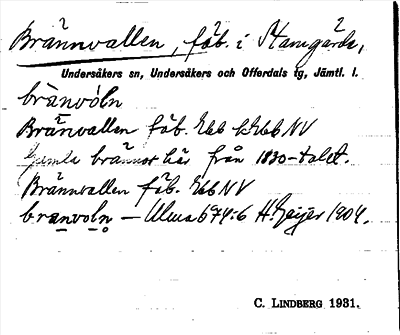 Brännvallen, fäb. i Stamgärde,
Undersåkers sn, Undersåkers och Offerdals tg, Jämtl. l.
brànvóln
Brännvallen fäb. Ekb NV
Gamla brännor här från 1830-talet.
Brännvallen fäb. Ekb NV
branvoln — Ulma 674:6 H. Geijer 1904.
C. LINDBERG 1931.